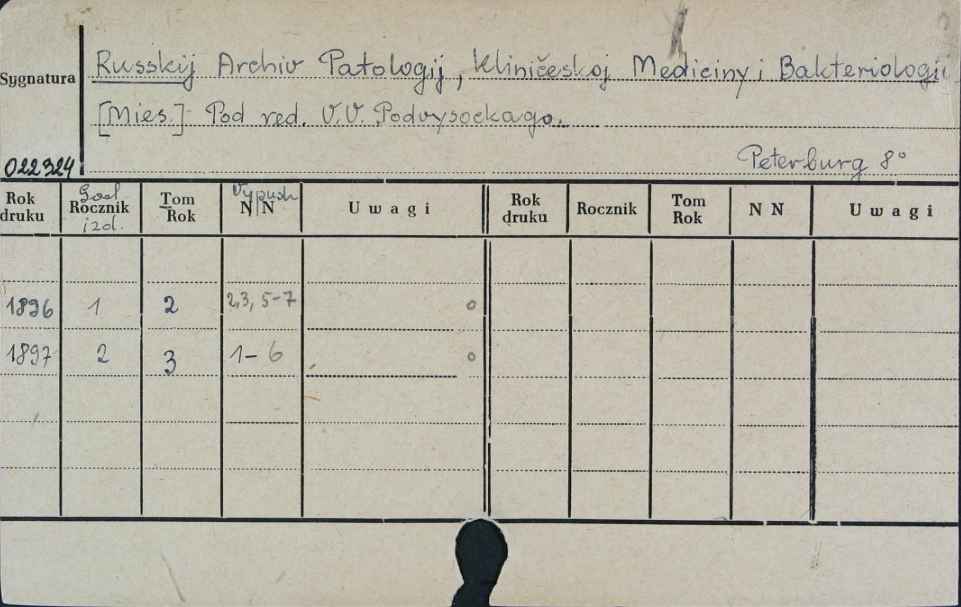 Sygnatura
Russkij Archiv Patologij, Kliničeskoj Mediciny i Bakteriologii
[Mies.] Pod red. V.V. Podvysockago.
022324
Peterburg 8°
Rok druku God Rocznik izd. Tom Rok Vypusk N N Uwagi Rok druku Rocznik Tom Rok N N Uwagi
1896 1 2 2,3, 5-7 o
1897 2 3 1-6 o